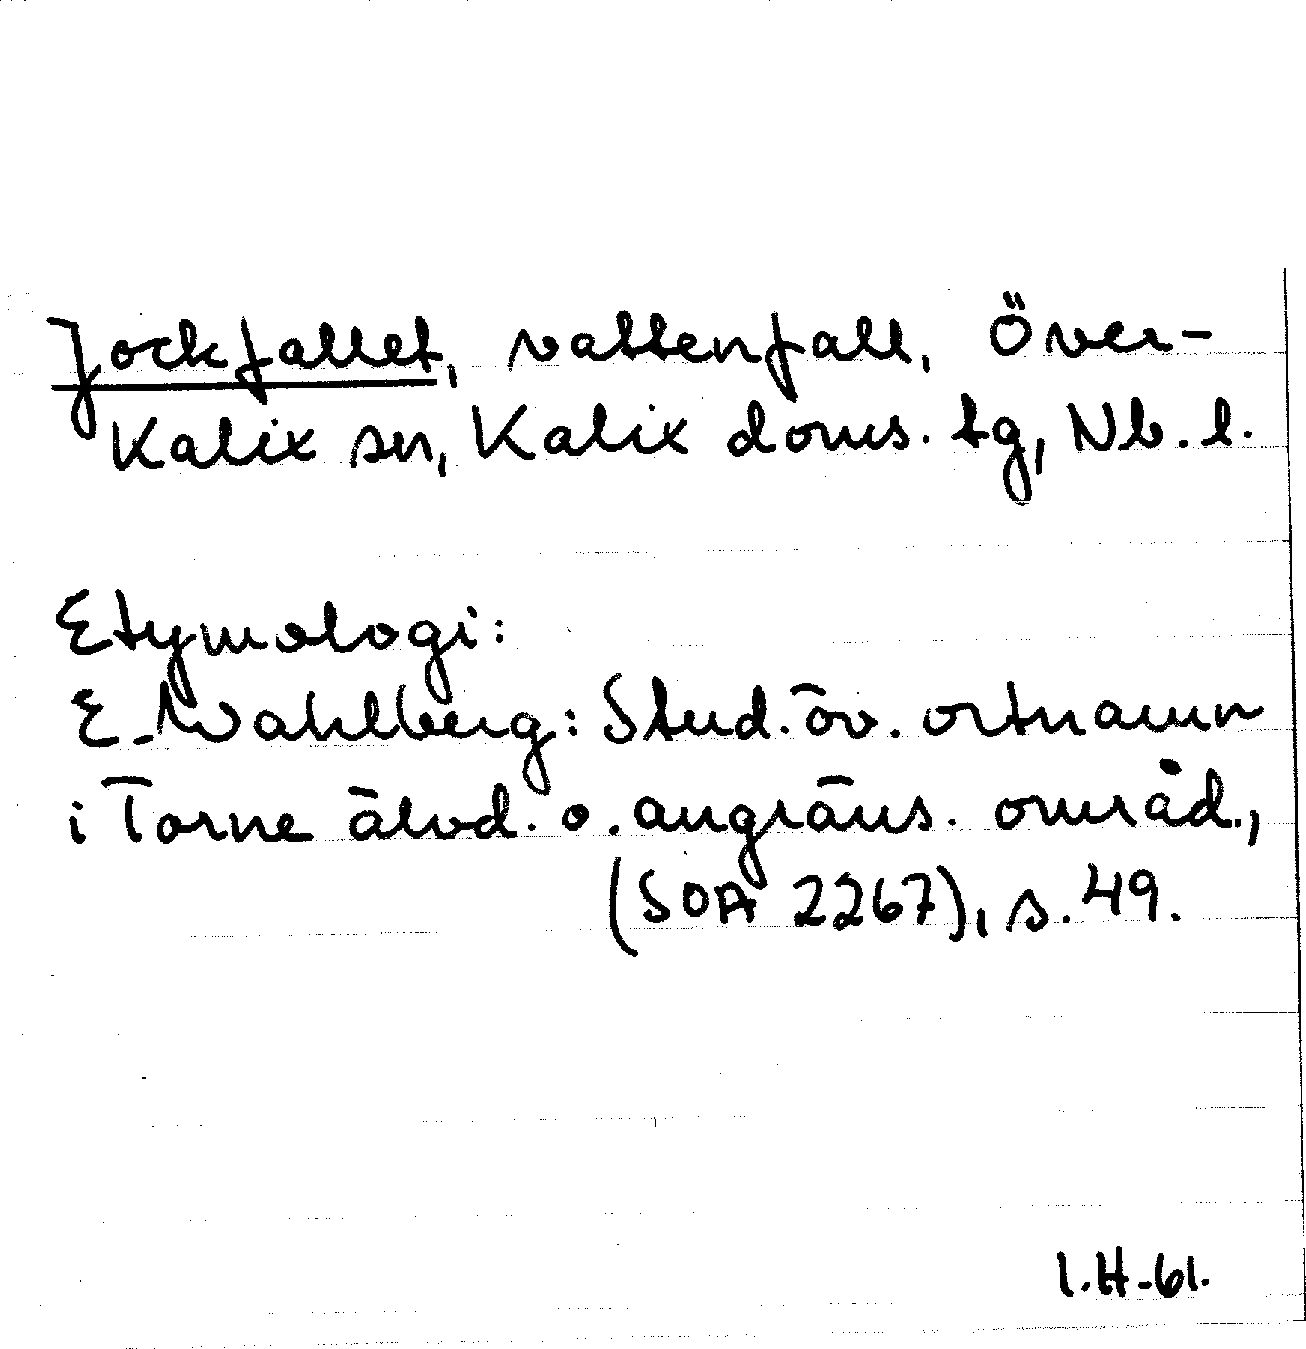 Jockfallet, vattenfall, Över-
Kalix sn, Kalix doms. tg, Nb. l.
Etymologi:
E. Wahlberg: Stud. öv. ortnamn
i Torne älvd. o. angräns. områd.,
(SOA 2267), s. 49.
I.H-61.